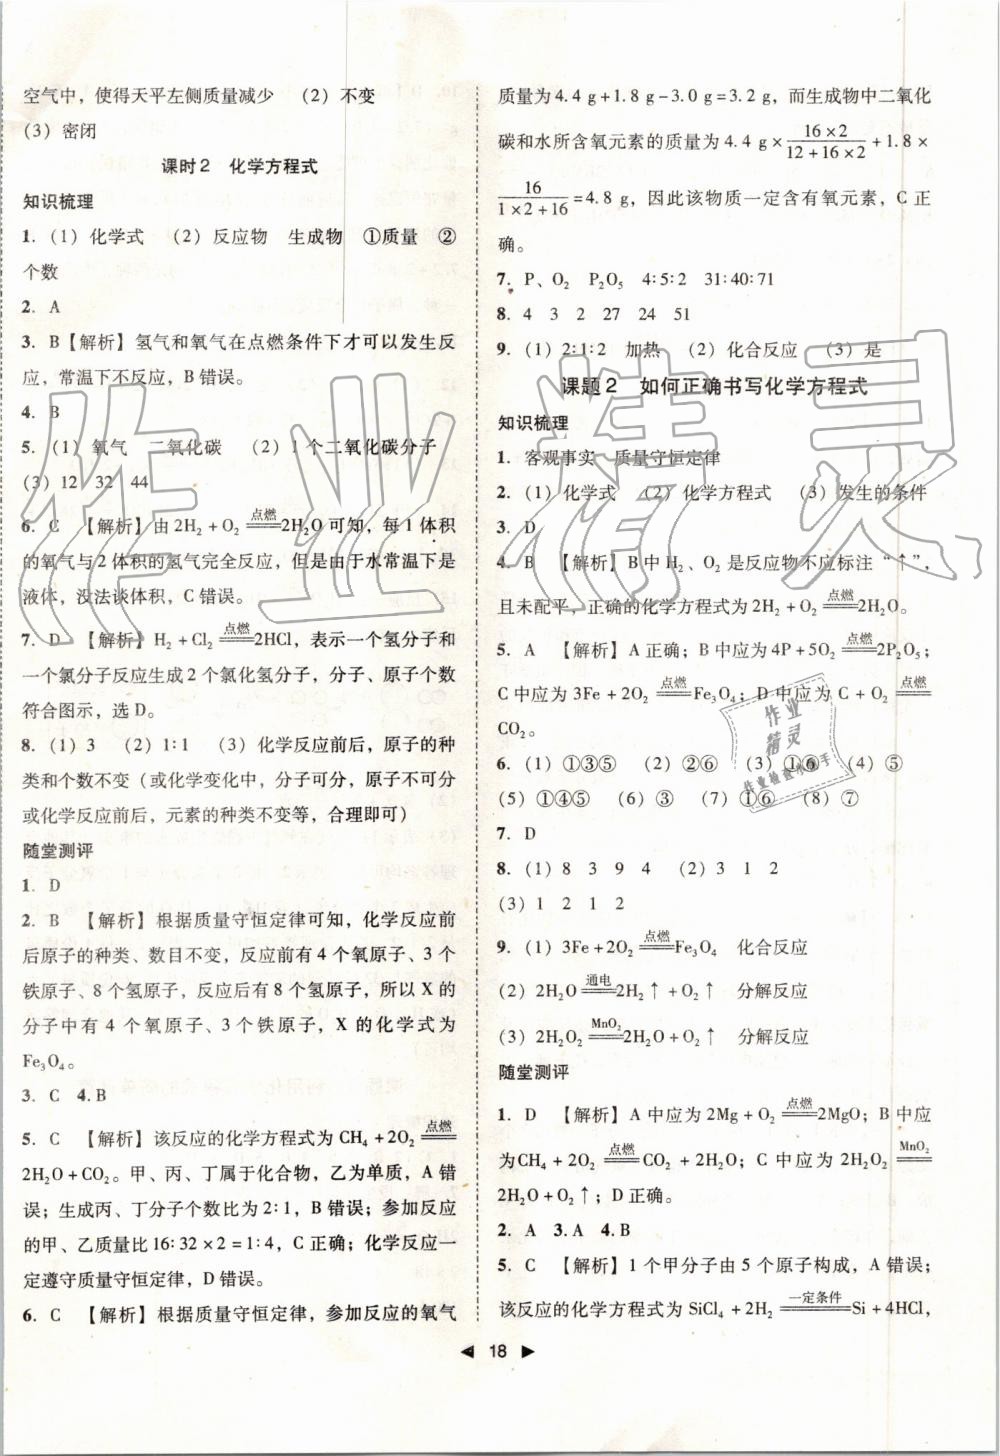 空气中，使得天平左侧质量减少 （2）不变
（3）密闭
课时2 化学方程式
知识梳理
1.（1）化学式 （2）反应物 生成物 ①质量 ②
个数
2. A
3. B【解析】氢气和氧气在点燃条件下才可以发生反
应，常温下不反应，B错误。
4. B
5.（1）氧气 二氧化碳 （2）1个二氧化碳分子
（3）12 32 44
6. C 【解析】由2H₂+O₂ ══点燃══ 2H₂O可知，每1体积
的氧气与2体积的氢气完全反应，但是由于水常温下是
液体，没法谈体积，C错误。
7. D 【解析】H₂+Cl₂ ══点燃══ 2HCl，表示一个氢分子和
一个氯分子反应生成2个氯化氢分子，分子、原子个数
符合图示，选D。
8.（1）3 （2）1∶1 （3）化学反应前后，原子的种
类和个数不变（或化学变化中，分子可分，原子不可分
或化学反应前后，元素的种类不变等，合理即可）
随堂测评
1. D
2. B 【解析】根据质量守恒定律可知，化学反应前
后原子的种类、数目不变，反应前有4个氧原子、3个
铁原子、8个氢原子，反应后有8个氢原子，所以X的
分子中有4个氧原子、3个铁原子，X的化学式为
Fe₃O₄。
3. C 4. B
5. C 【解析】该反应的化学方程式为CH₄+2O₂ ══点燃══
2H₂O+CO₂。甲、丙、丁属于化合物，乙为单质，A错
误；生成丙、丁分子个数比为2∶1，B错误；参加反应
的甲、乙质量比16∶32×2=1∶4，C正确；化学反应一
定遵守质量守恒定律，D错误。
6. C 【解析】根据质量守恒定律，参加反应的氧气
质量为4.4 g+1.8 g-3.0 g=3.2 g，而生成物中二氧化
碳和水所含氧元素的质量为4.4 g×(16×2)/(12+16×2)+1.8×
16/(1×2+16)=4.8 g，因此该物质一定含有氧元素，C正
确。
7. P、O₂ P₂O₅ 4∶5∶2 31∶40∶71
8. 4 3 2 27 24 51
9.（1）2∶1∶2 加热 （2）化合反应 （3）是
课题2 如何正确书写化学方程式
知识梳理
1. 客观事实 质量守恒定律
2.（1）化学式 （2）化学方程式 （3）发生的条件
3. D
4. B 【解析】B中H₂、O₂是反应物不应标注“↑”，
且未配平，正确的化学方程式为2H₂+O₂ ══点燃══ 2H₂O。
5. A 【解析】A正确；B中应为4P+5O₂ ══点燃══ 2P₂O₅；
C中应为3Fe+2O₂ ══点燃══ Fe₃O₄；D中应为C+O₂ ══点燃══
CO₂。
6.（1）①③⑤ （2）②⑥ （3）①⑥ （4）⑤
（5）①④⑤ （6）③ （7）①⑥ （8）⑦
7. D
8.（1）8 3 9 4 （2）3 1 2
（3）1 2 1 2
9.（1）3Fe+2O₂ ══点燃══ Fe₃O₄ 化合反应
（2）2H₂O ══通电══ 2H₂↑+O₂↑ 分解反应
（3）2H₂O₂ ══MnO₂══ 2H₂O+O₂↑ 分解反应
随堂测评
1. D 【解析】A中应为2Mg+O₂ ══点燃══ 2MgO；B中应
为CH₄+2O₂ ══点燃══ CO₂+2H₂O；C中应为2H₂O₂ ══MnO₂══
2H₂O+O₂↑；D正确。
2. A 3. A 4. B
5. C 【解析】1个甲分子由5个原子构成，A错误；
该反应的化学方程式为SiCl₄+2H₂ ══一定条件══ Si+4HCl，
18
作业精灵
作业
精灵